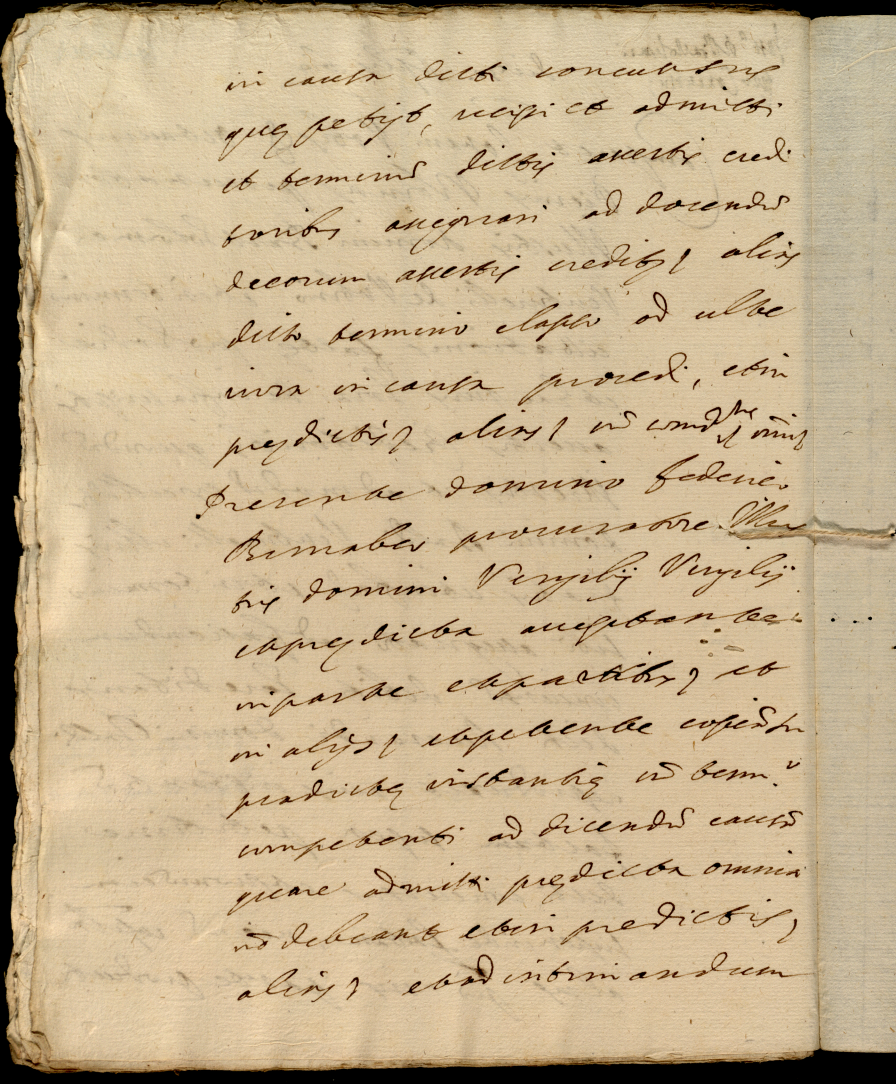 in causa dicti concursus
quę petijt, recipi et admitti
et terminũ dictis assertis credi
toribus assignari ad docendũ
de eorum assertis creditis, alias
dicto termino elapso ad ulte
riora in causa procedi, et in
prędictis, alias,
Presente domino Federico
Barnabeo procuratore Illus
tris domini Vergilij Vergilij
et prędicta acceptante
in parte et partibus, et
in alijs, et petente copiam
pradictę instantię cũ term.º
competenti ad dicendũ causã
quare admitti prędicta omnia
nõ debeant et in predictis,
alias, et ad intimandum